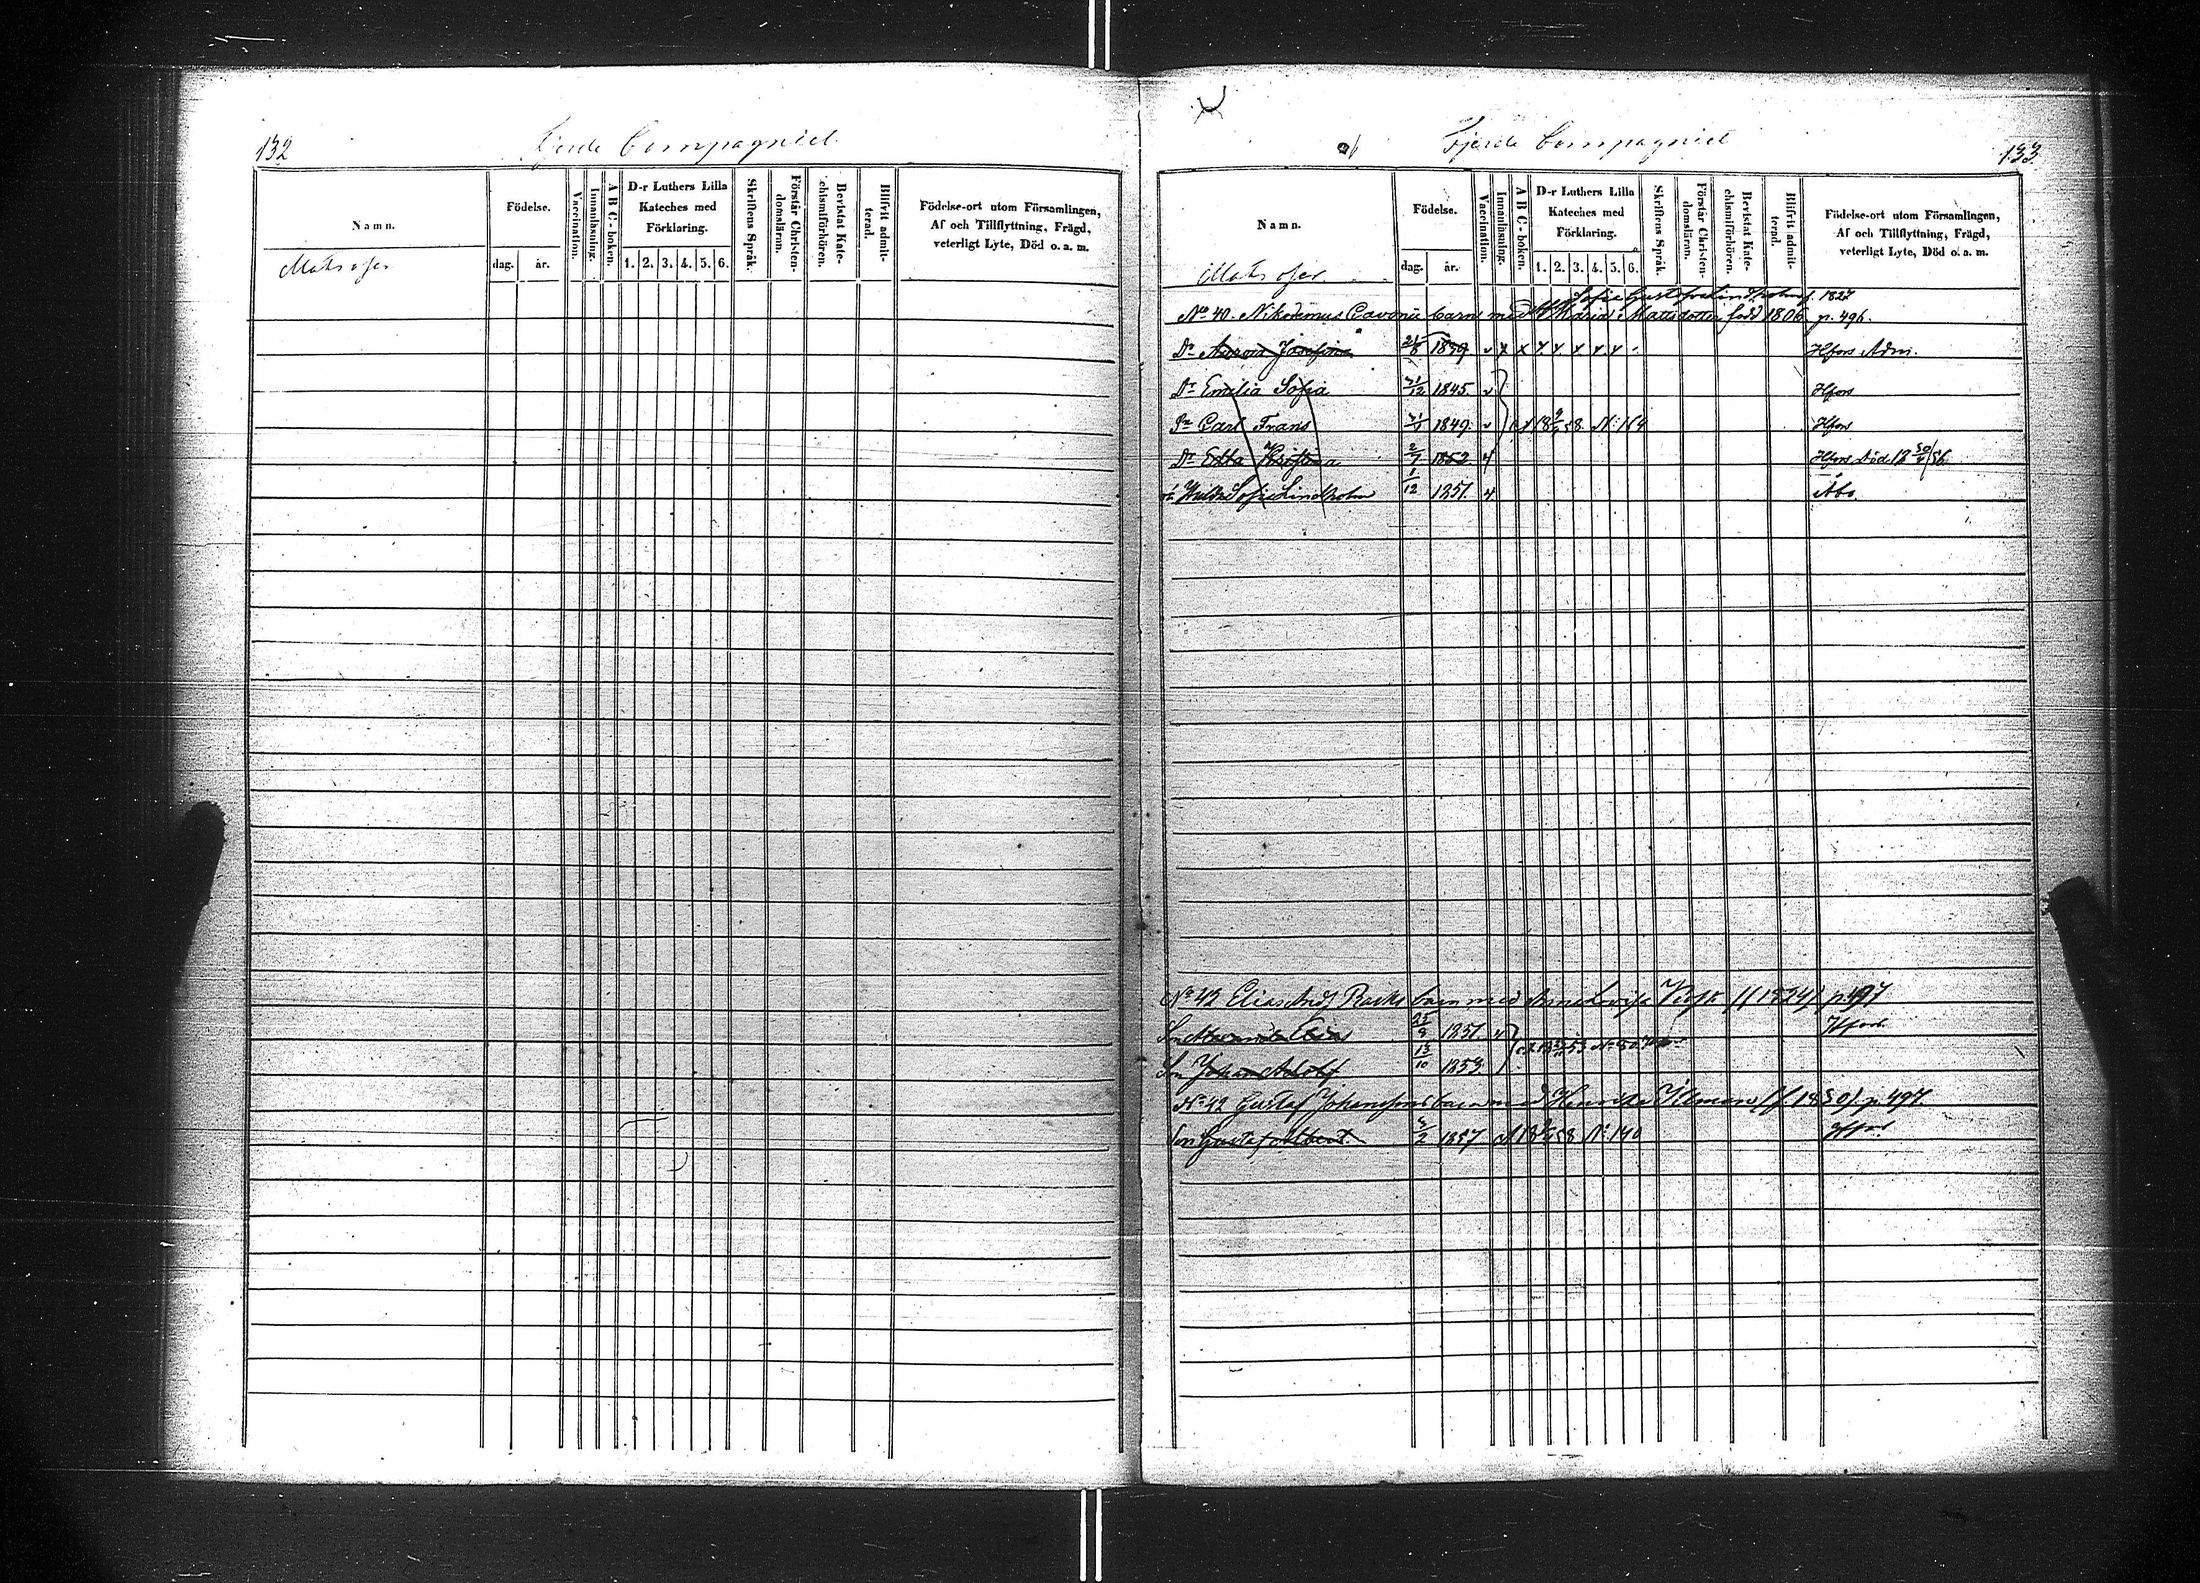 132
Fjerde Compagniet.
Namn.
Matroser
Födelse.
dag. år.
Vaccination.
Innanläsning.
A B C - boken.
D-r Luthers Lilla
Kateches med
Förklaring.
1. 2. 3. 4. 5. 6.
Skriftens Språk.
Förstår Christen-
domsläran.
Bevistat Kate-
chismiförhören.
Blifvit admit-
terad.
Födelse-ort utom Församlingen,
Af och Tillflyttning, Frägd,
veterligt Lyte, Död o. a. m.
Fjerde Compagniet
133
Namn.
Matroser.
Födelse.
dag. år.
Vaccination.
Innanläsning.
A B C - boken.
D-r Luthers Lilla
Kateches med
Förklaring.
1. 2. 3. 4. 5. 6.
Skriftens Språk.
Förstår Christen-
domsläran.
Bevistat Kate-
chismiförhören.
Blifvit admit-
terad.
Födelse-ort utom Församlingen,
Af och Tillflyttning, Frägd,
veterligt Lyte, Död o. a. m.
Sofia Lindholm f. 1827
No 40. Nikodemus Cavonii barn med Maria Mattsdotter född 1806 p. 496.
Dr Aurora Josefina 1839 v x x Hfors Adm.
Dr Emilia Sofia 1845. v Hfors
Sn Carl Frans 1849. v 58 N: 164 Hfors
Dr Edla Kristina 2/7 1852. Hfors Död 18 56
Hulda Sofia Lindholm 1/12 1851. Åbo
No 42 Elias barn med Lovisa p. 497
Son Elias 25/8 1851. Hfors
Son Johan Adolf 13/10 1853.
No 42 Gustaf Johanssons barn med p. 497.
Son Gustaf Albert 1857 58 No 140 Hfors